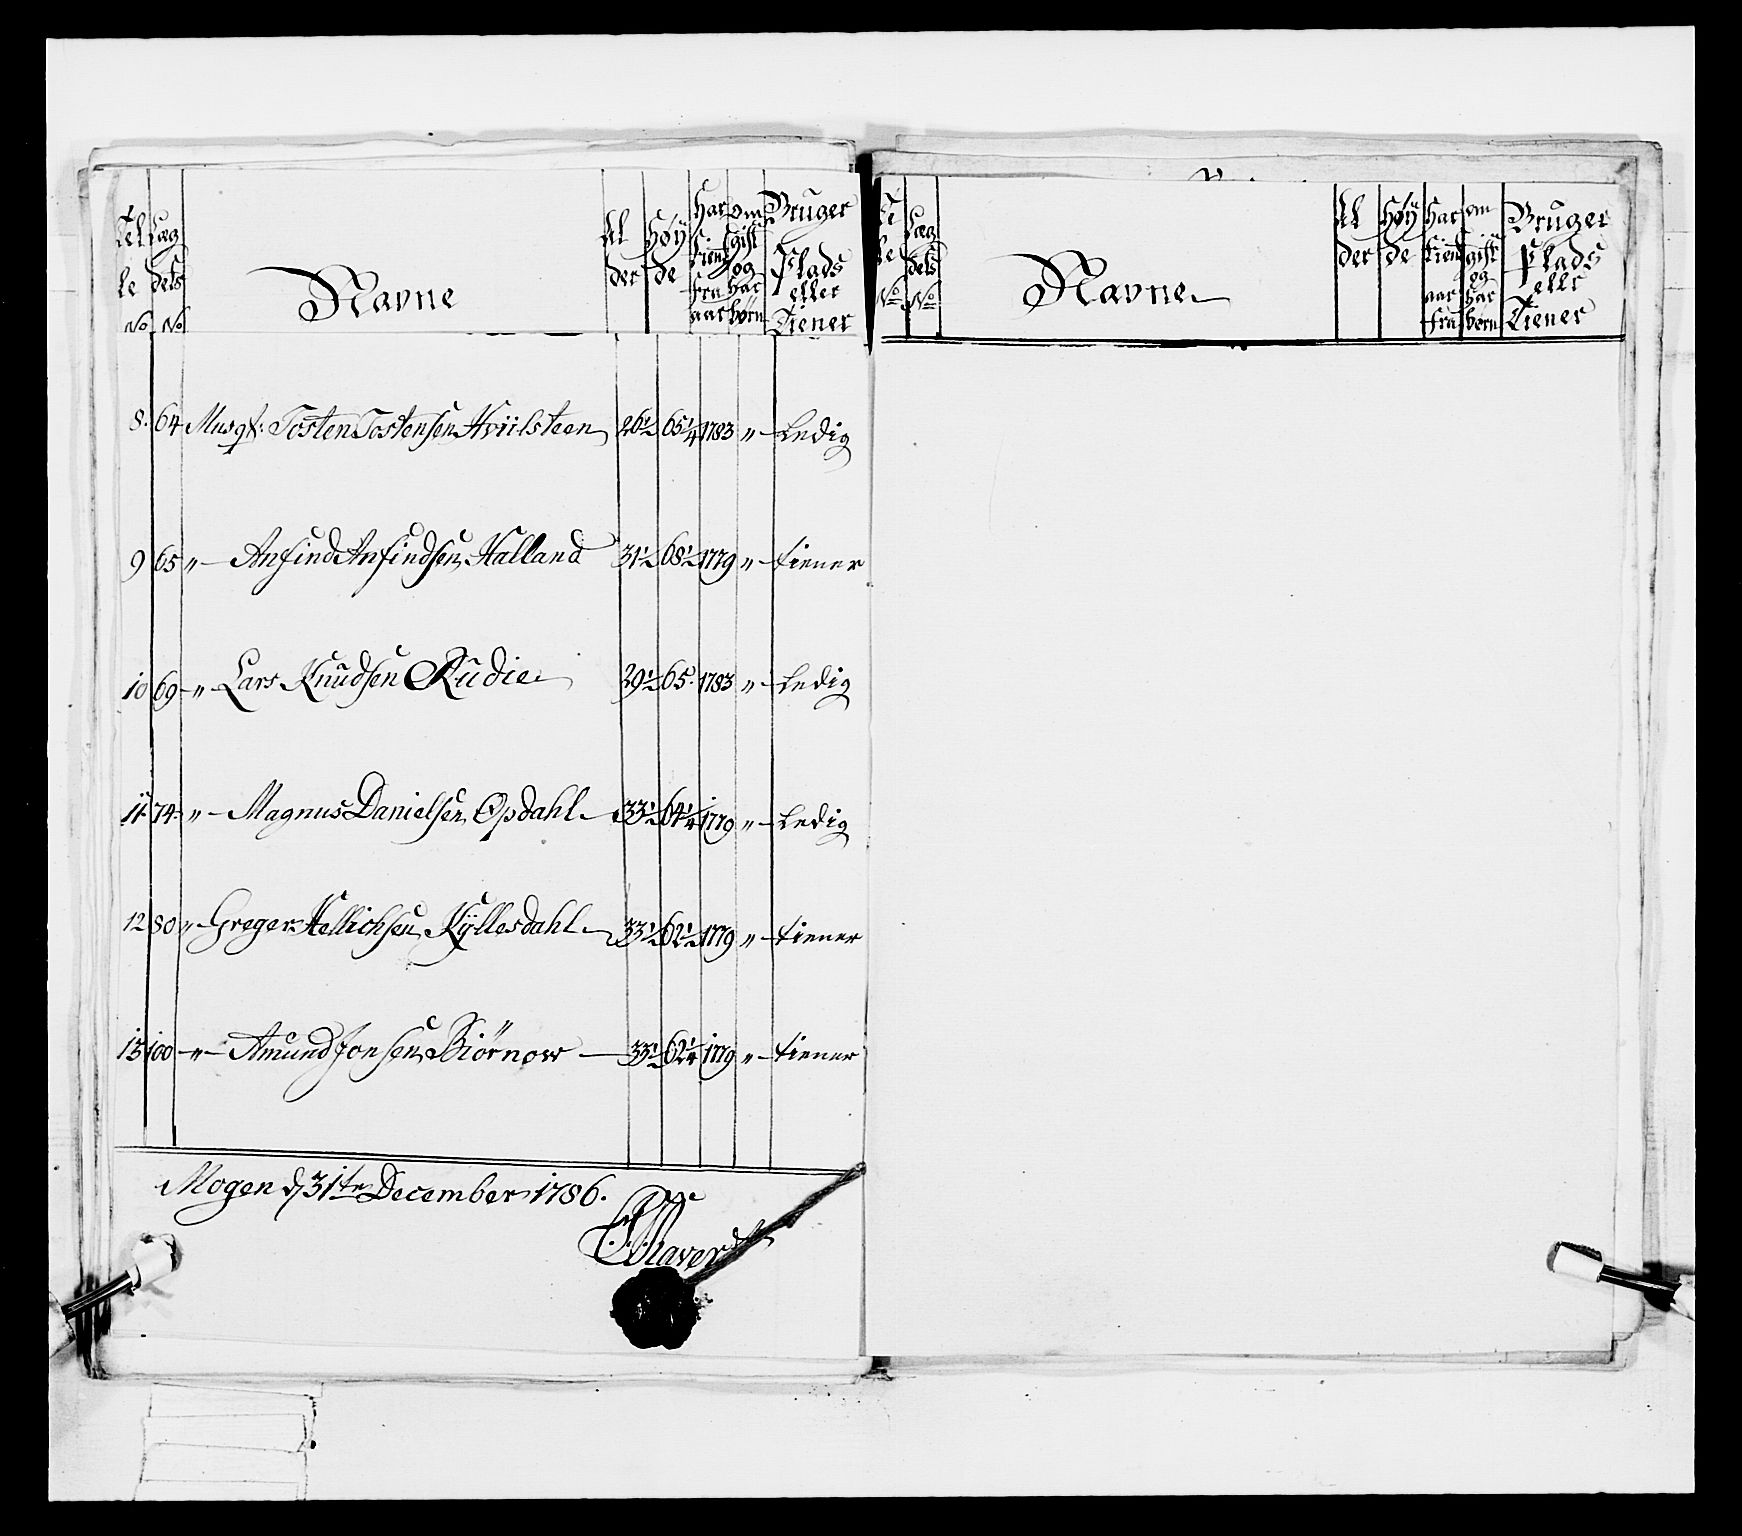 Tel le No | Læg dets No | Navne | Al der | Høy de | Har tient fra aar | om gift og har børn | Bruger Plads eller Tiener
8. 64 Musqt: Tosten Tostensen Hviilsteen 26½ 65¼ 1783 " Ledig
9 65 " Anfind Anfindsen Halland 31½ 68½ 1779 " tiener
10 69 " Lars Knudsen Rudie 29½ 65. 1783 " Ledig
11. 74 " Magnus Danielsen Opdahl 33½ 64¼ 1779 " Ledig
12 80 " Greger Hellichsen Kÿllesdahl 33½ 62½ 1779 " tiener
13 100 " Amund Jonsen Biørnow 33½ 62¼ 1779 " tiener
Mogen d 31te December 1786.
Læg dets No | Navne | Al der | Høy de | Har tient aar fra | om gift og har børn | Bruger Plads ellr Tiener